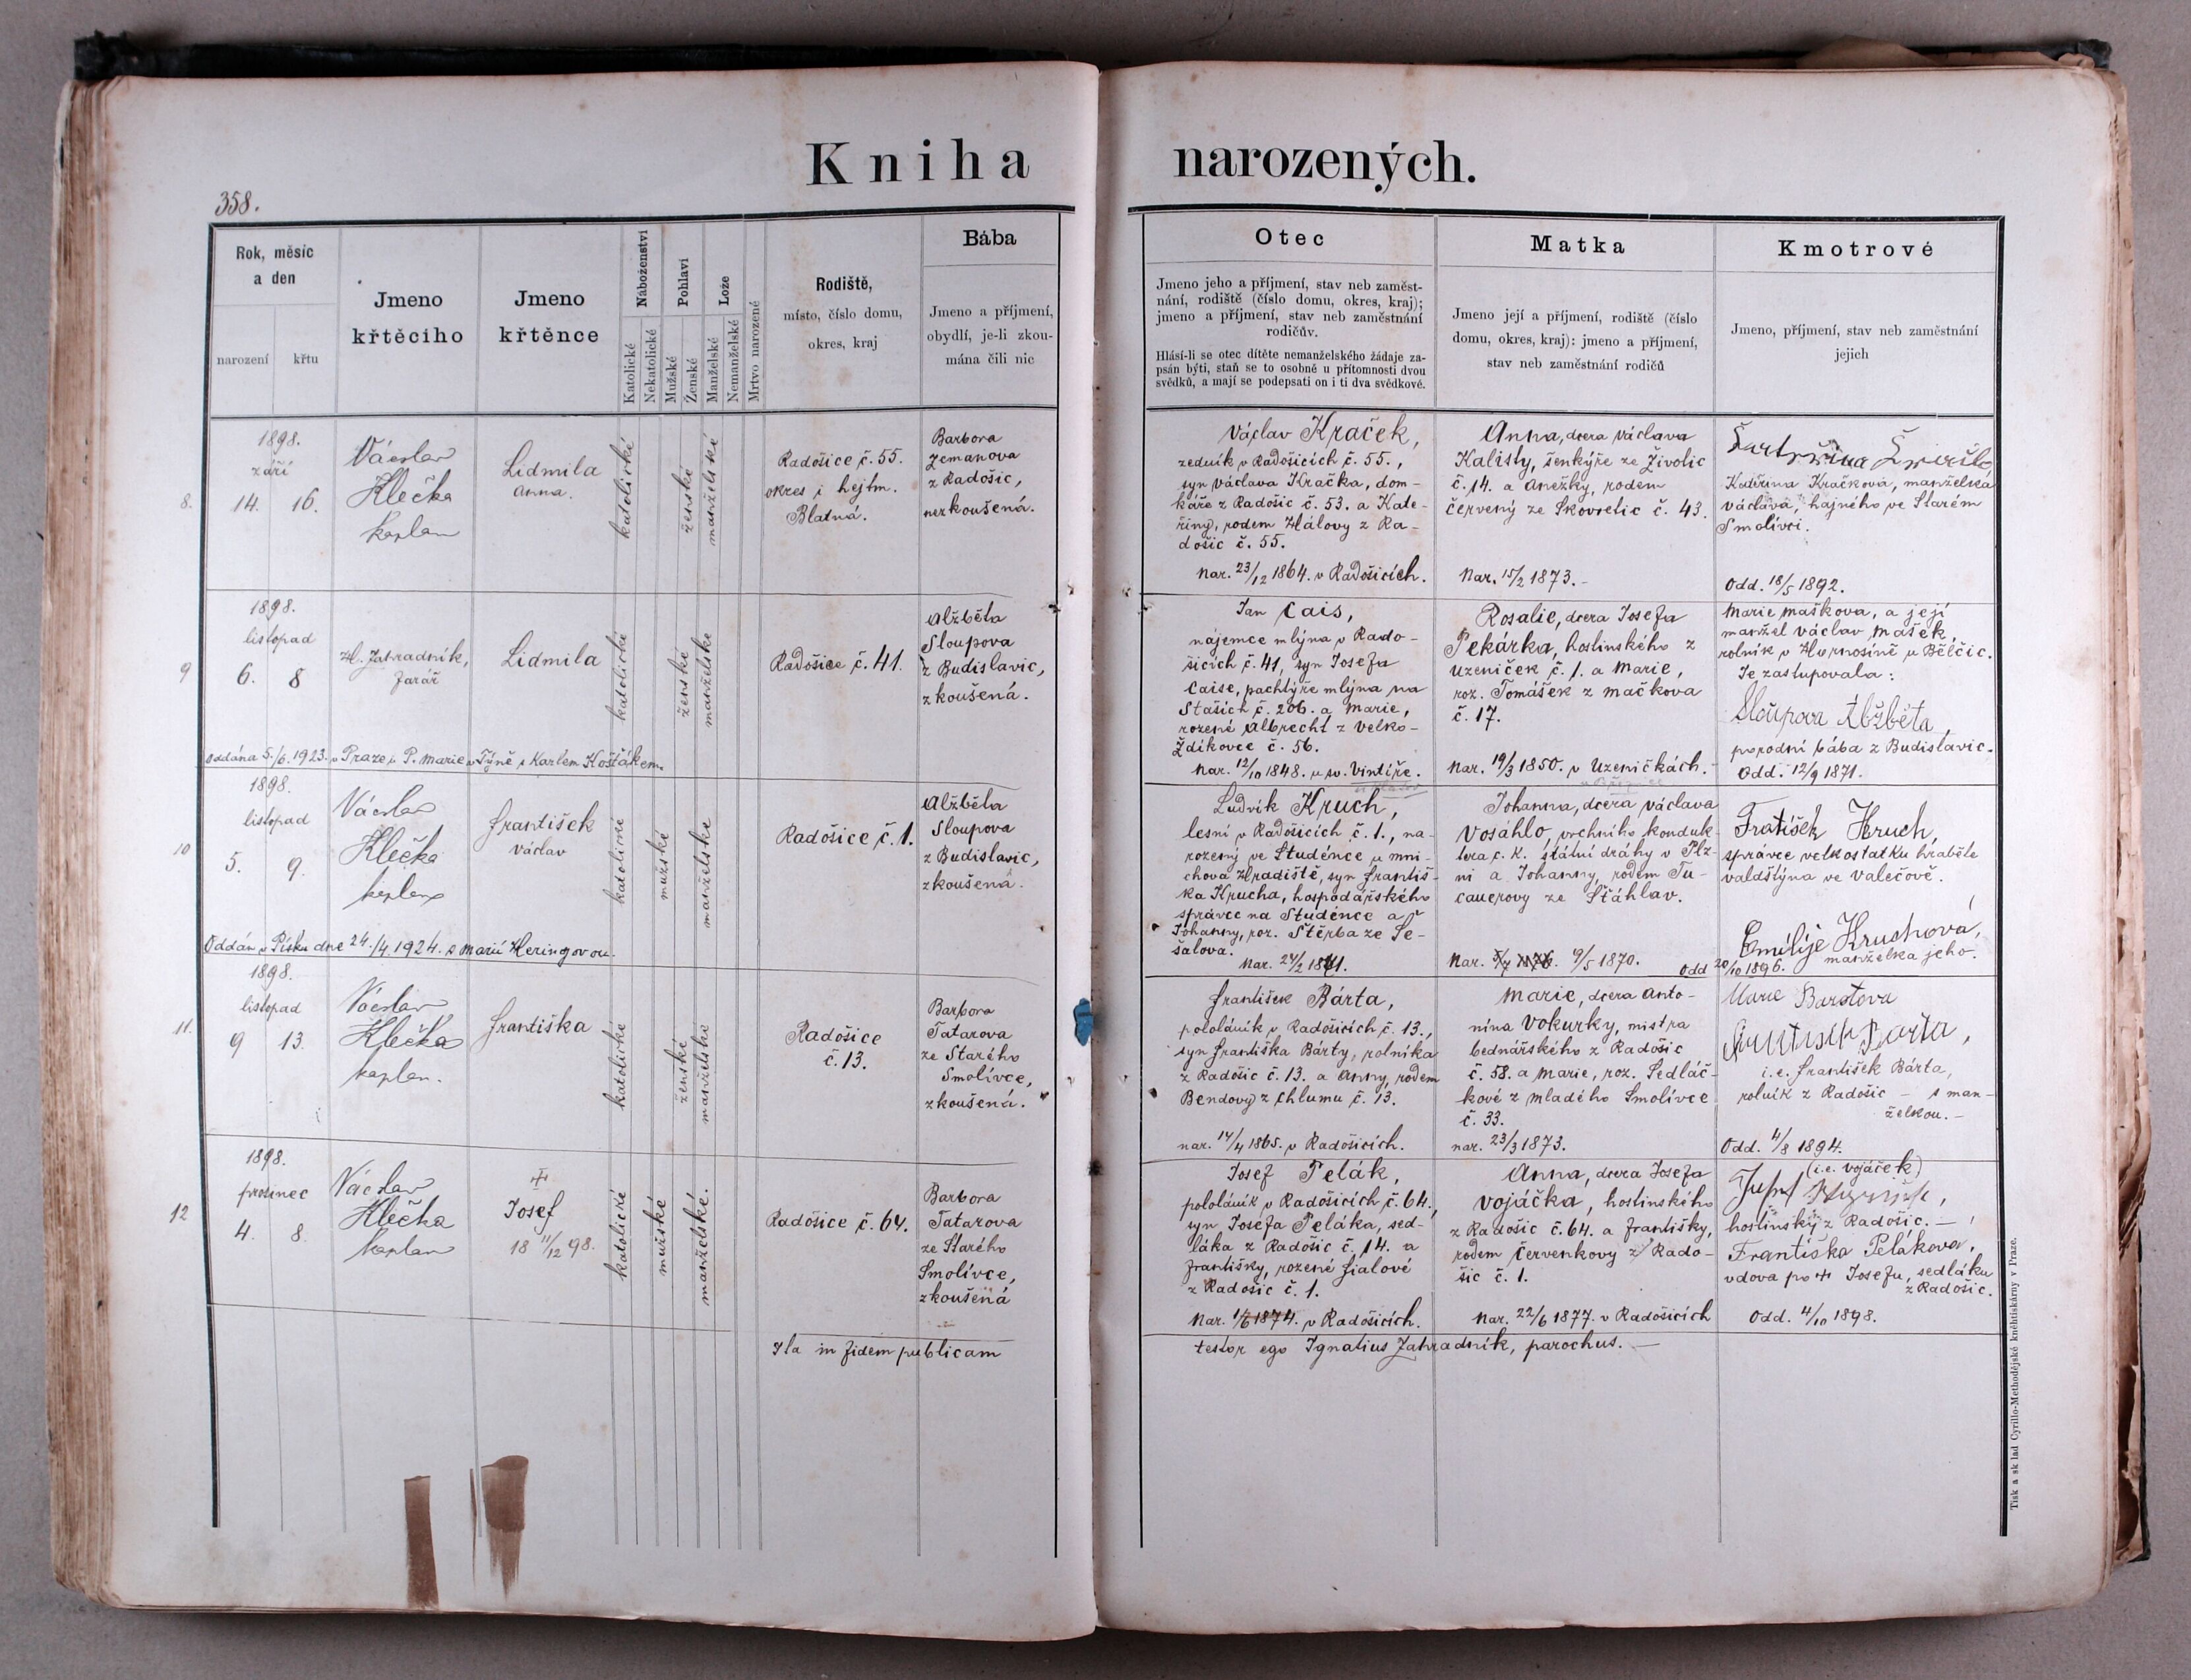 Kniha narozených.
358.
Rok, měsíc
a den
narození
křtu
Jmeno
křtěcího
Jmeno
křtěnce
Náboženství
Katolické
Nekatolické
Pohlaví
Mužské
Ženské
Lože
Manželské
Nemanželské
Mrtvo narozené
Rodiště,
místo, číslo domu,
okres, kraj
Bába
Jmeno a příjmení,
obydlí, je-li zkou-
mána čili nic
Otec
Jmeno jeho a příjmení, stav neb zaměst-
nání, rodiště (číslo domu, okres, kraj);
jmeno a příjmení, stav neb zaměstnání
rodičův.
Hlásí-li se otec dítěte nemanželského žádaje za-
psán býti, staň se to osobně u přítomnosti dvou
svědků, a mají se podepsati on i ti dva svědkové.
Matka
Jmeno její a příjmení, rodiště (číslo
domu, okres, kraj): jmeno a příjmení,
stav neb zaměstnání rodičů
Kmotrové
Jmeno, příjmení, stav neb zaměstnání
jejich
8.
1898.
září
14. 16.
Václav
Klečka
kaplan
Lidmila
Anna.
katolické
ženské
manželské
Radošice č. 55.
okres i hejtm.
Blatná.
Barbora
Zemanova
z Radošic,
nezkoušená.
Václav Kraček,
zedník v Radošicích č. 55.,
syn Václava Kračka, dom-
káře z Radošic č. 53. a Kate-
řiny, rodem Hálovy z Ra-
došic č. 55.
Nar. 23/12 1864. v Radošicích.
Anna, dcera Václava
Kalisty, šenkýře ze Živolic
č. 14. a Anežky, rodem
Červený ze Skvoretic č. 43.
Nar. 15/2 1873.-
Kateřina Kračková, manželka
Václava, hajného ve Starém
Smolivci.
Odd. 18/5 1892.
9
1898.
listopad
6. 8
Hl. Zahradník,
farář
Lidmila
katolické
ženské
manželské
Radošice č. 41.
Alžběta
Sloupova
z Budislavic,
zkoušená.
Oddána 5./6. 1923. v Praze u P. Marie v Týně s Karlem Košťákem.
Jan Cais,
nájemce mlýna v Rado-
šicích č. 41, syn Josefa
Caise, pachtýře mlýna na
Staších č. 206. a Marie,
rozené Albrecht z Velko-
Zdíkovce č. 56.
Nar. 12/10 1848. u sv. Vintíře.
Rosalie, dcera Josefa
Pekárka, hostinského z
Uzeniček č. 1. a Marie,
roz. Tomášek z Mačkova
č. 17.
Nar. 19/3 1850. v Uzeničkách.
Marie Maškova, a její
manžel Václav Mašek,
rolník v Hornosíně u Bělčic.
Je zastupovala:
Sloupova Alžběta,
porodní bába z Budislavic.
Odd. 12/9 1871.
10
1898.
listopad
5. 9.
Václav
Klečka
kaplan
František
Václav
katolické
mužské
manželské
Radošice č. 1.
Alžběta
Sloupova
z Budislavic,
zkoušená.
Oddán v Písku dne 24./4. 1924. s Marií Heringovou.
Ludvík Kruch,
lesní v Radošicích č. 1., na-
rozený ve Studénce u Mni-
chova Hradiště, syn Františ-
ka Krucha, hospodářského
správce na Studénce a
Johanny, roz. Štěrba ze Se-
šalova.
Nar. 24/2 1861.
Johanna, dcera Václava
Vosáhlo, vrchního konduk-
tera c. K. státní dráhy v Plz-
ni a Johanny, rodem Tu-
cauerovy ze Štáhlav.
Nar. 9/5 1870.
Fratišek Kruch,
správce velkostatku hraběte
Valdštýna ve Valečově.
Emilije Kruchová,
manželka jeho.
Odd 20/10 1896.
11.
1898.
listopad
9 13.
Václav
Klečka
kaplan.
Františka
katolické
ženské
manželské
Radošice
č. 13.
Barbora
Tatarova
ze Starého
Smolivce,
zkoušená.
František Bárta,
pololáník v Radošicích č. 13.,
syn Františka Bárty, rolníka
z Radošic č. 13. a Anny, rodem
Bendovy z Chlumu č. 13.
nar. 14/4 1865. v Radošicích.
Marie, dcera Anto-
nína Vokurky, mistra
bednářského z Radošic
č. 58. a Marie, roz. Sedláč-
kové z Mladého Smolivce
č. 33.
nar. 23/3 1873.
Marie Bartova
František Barta,
i.e. František Bárta,
rolník z Radošic - s man-
želkou.-
Odd. 4/8 1894.
12
1898.
prosinec
4. 8.
Václav
Klečka
kaplan
Josef
18 11/12 98.
katolické
mužské
manželské.
Radošice č. 64.
Barbora
Tatarova
ze Starého
Smolivce,
zkoušená
Josef Pelák,
pololáník v Radošicích č. 64.,
syn Josefa Peláka, sed-
láka z Radošic č. 14. a
Františky, rozené Fialové
z Radošic č. 1.
Nar. 1/6 1874. v Radošicích.
Anna, dcera Josefa
Vojáčka, hostinského
z Radošic č. 64. a Františky,
rodem Červenkovy z Rado-
šic č. 1.
Nar. 22/6 1877. v Radošicích
(i.e. Vojáček)
Josef
hostinský z Radošic.-
Františka Pelákova,
vdova po Josefu, sedláku
z Radošic.
Odd. 4/10 1898.
Ita in fidem publicam testor ego Ignatius Zahradník, parochus.-
Tisk a sklad Cyrillo-Methodějské knihtiskárny v Praze.